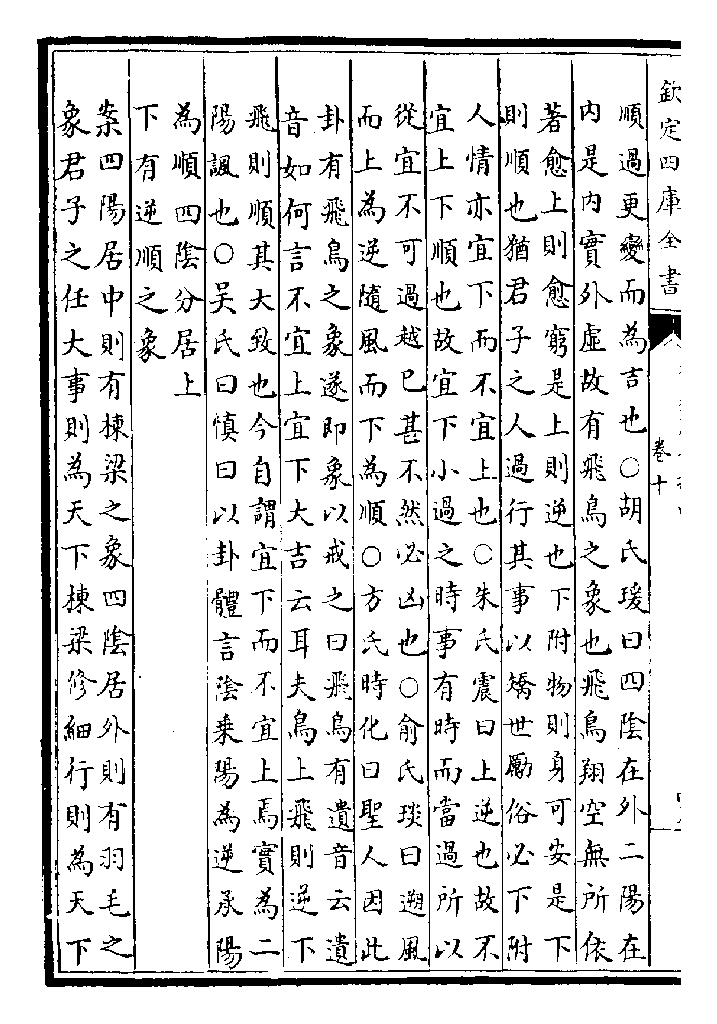 欽定四庫全書
卷十
順過更變而為吉也○胡氏瑗曰四陰在外二陽在
內是内實外虚故有飛鳥之象也飛鳥翔空無所依
著愈上則愈窮是上則逆也下附物則身可安是下
則順也猶君子之人過行其事以矯世勵俗必下附
人情亦宜下而不宜上也○朱氏震曰上逆也故不
宜上下順也故宜下小過之時事有時而當過所以
從宜不可過越已甚不然必凶也○俞氏琰曰遡風
而上為逆隨風而下為順○方氏時化曰聖人因此
卦有飛鳥之象遂即象以戒之曰飛鳥有遺音云遺
音如何言不宜上宜下大吉云耳夫鳥上飛則逆下
飛則順其大致也今自謂宜下而不宜上焉實為二
陽諷也○吳氏曰慎曰以卦體言陰乗陽為逆承陽
為順四陰分居上
下有逆順之象
案四陽居中則有棟梁之象四陰居外則有羽毛之
象君子之任大事則為天下棟梁修細行則為天下